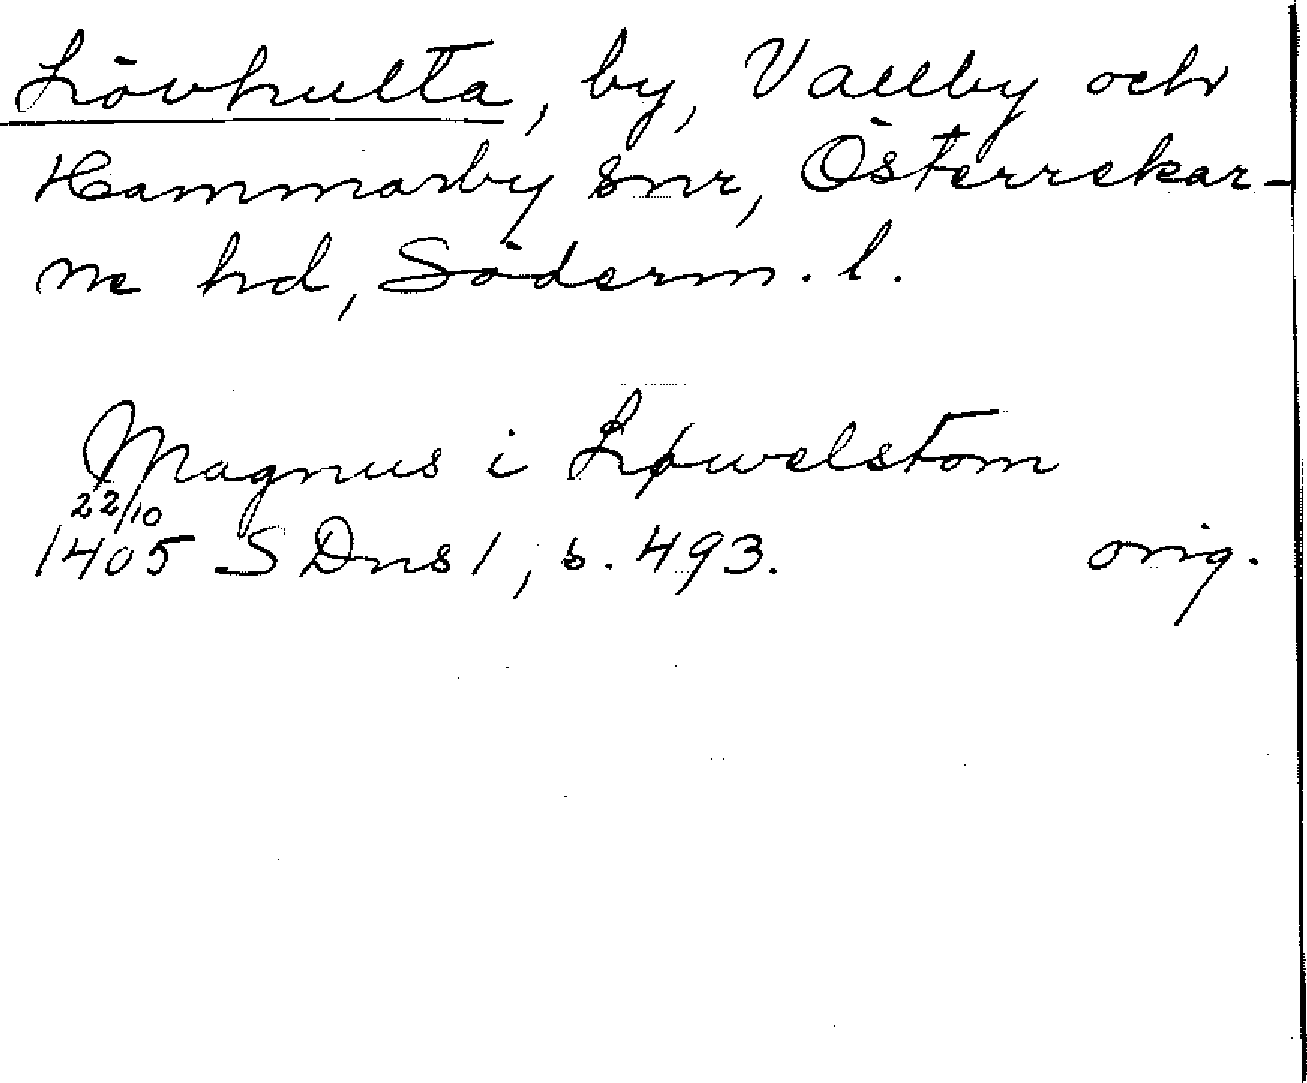 Lövhulta, by, Vallby och
Hammarby snr, Österrekar-
ne hd, Söderm. l.
Magnus i Løwelstom
22/10
1405 SDns 1, s. 493. orig.